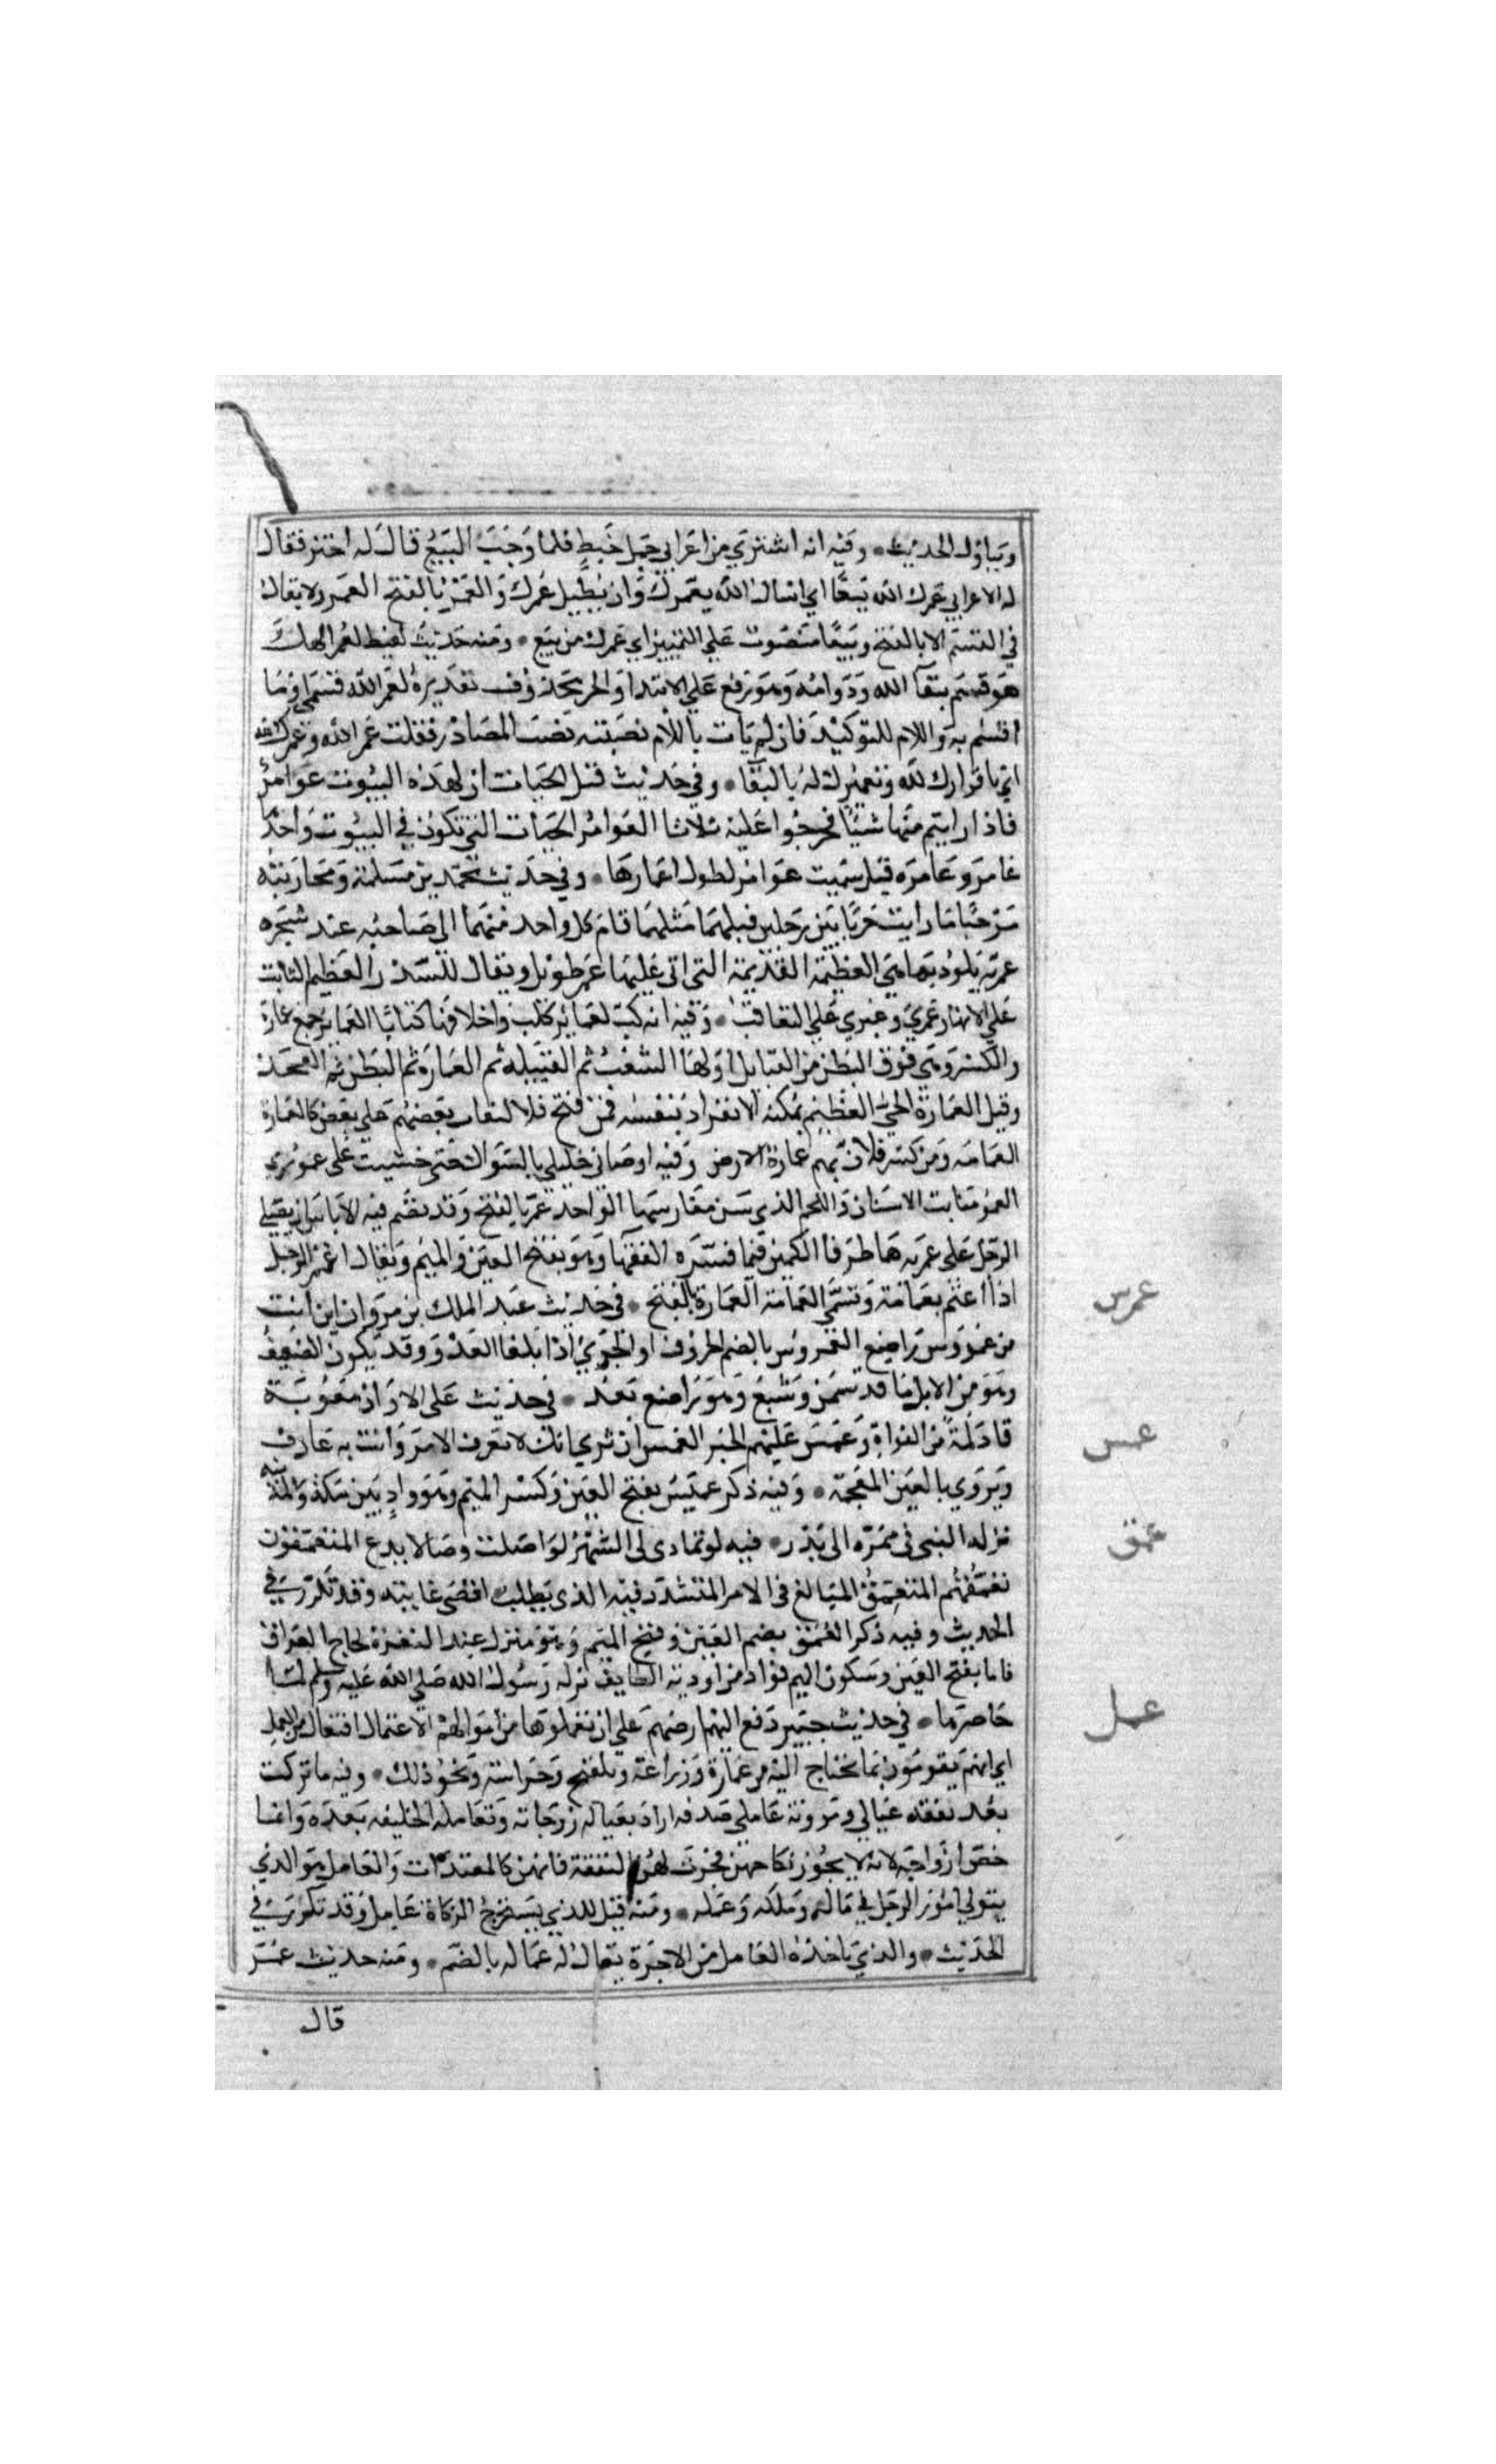 ويتاول الحديث وفيه انه اشتري من اعرابي حمل خبط فلما وجب البيع قال له اختر فقال
له الاعرابي عمرك الله بيعا اي اسال الله يعمرك وان يطيل عمرك والعمر بالفتح العمر ولا يقال
في القسم الا بالفتح وبيعا منصوب علي التمييز اي عمرك من بيع ومنه حديث لقيط لعمر الهك
هو قسم ببقآ الله ودوامه وهو رفع علي الابتدا والخبر محذوف تقديره لعمر الله قسمي او ما
اقسم به واللام للتوكيد فان لم يات باللام نصبته نصب المصادر فقلت عمر الله وعمرك الله
اي باقرارك لله وتعميرك له بالبقآ وفي حديث قتل الحيات ان لهذه البيوت عوامر
فاذا رايتم منها شيئا فحرجوا عليه ثلاثا العوامر الحيات التي تكون في البيوت واحدها
عامر وعامره قيل سميت عوامر لطول اعمارها وفي حديث محمد بن مسلمة ومحاربته
مرحبا ما رايت حربا بين رجلين قبلهما مثلهما قام كل واحد منهما الي صاحبه عند شجره
عمريه يلوذ بها هي العظيمة القديمة التي اتي عليها عمر طويل ويقال للسدر العظيم النابت
علي الانهار عمري وعبري علي التعاقب وفيه انه كتب لعماير كلب واحلافها كتابا العماير جمع عمارة
والكسر وهي فوق البطن من القبايل اولها الشعب ثم القبيله ثم العمارة ثم البطن ثم الفخذ
وقيل العمارة الحي العظيم يمكنه الانفراد بنفسه فمن فتح فلالتفاف بعضهم علي بعض كالعمارة
العمامه ومن كسر فلان بهم عمارة الارض وفيه اوصاني خليلي بالسواك حتي خشيت علي عموري
العمور منابت الاسنان واللحم الذي بين مغارسها الواحد عمر بالفتح وقد يضم فيه لا باس ان يصلي
الرجل علي عمريه هما طرفا الكمين فيما فسره الفقها وهو بفتح العين والميم ويقال اعتمر الرجل
اذا اعتم بعمامة وتسمي العمامة العمارة بالفتح في حديث عبد الملك بن مروان اين انت
من عمروس راضع العمروس بالضم الخروف او الجدي اذا بلغا العدو وقد يكون الضعيف
وهو من الابل ما قد سمن وشبع وهو راضع بعد في حديث علي الا وان معوية
قاد لمة من الغواة وعمس عليهم الخبر العمس ان تري انك لا تعرف الامر وانت به عارف
ويروي بالغين المعجمة وفيه ذكر عميس بفتح العين وكسر الميم وهو واد بين مكة والمدينه
نزله النبي في ممره الي بدر فيه لو تمادي لي الشهر لواصلت وصالا يدع المتعمقون
تعمقهم المتعمق المبالغ في الامر المتشدد فيه الذي يطلب اقصي غايته وقد تكرر في
الحديث وفيه ذكر العمق بضم العين وفتح الميم وهو منزل عند النقرة لحاج العراق
فاما بفتح العين وسكون الميم فواد من اودية الطايف نزله رسول الله صلي الله عليه وسلم لما
حاصرها في حديث خيبر دفع اليهم ارضهم علي ان يعتملوها من اموالهم الاعتمال افتعال من العمل
اي انهم يقومون بما يحتاج اليه من عمارة وزراعة وتلقيح وحراسة ونحو ذلك وفيه ما تركت
بعد نفقه عيالي ومؤونة عاملي صدقه اراد بعياله زوجاته وبعامله الخليفه بعده وانما
خص ازواجه لانه لا يجوز نكاحهن فجرت لهن النفقة فانهن كالمعتدات والعامل هو الذي
يتولي امور الرجل في ماله وملكه وعمله ومنه قيل للذي يستخرج الزكاة عامل وقد تكرر في
الحديث والذي ياخذه العامل من الاجرة يقال له عماله بالضم ومنه حديث عمر
قال
عمرس
عمس
عمق
عمل